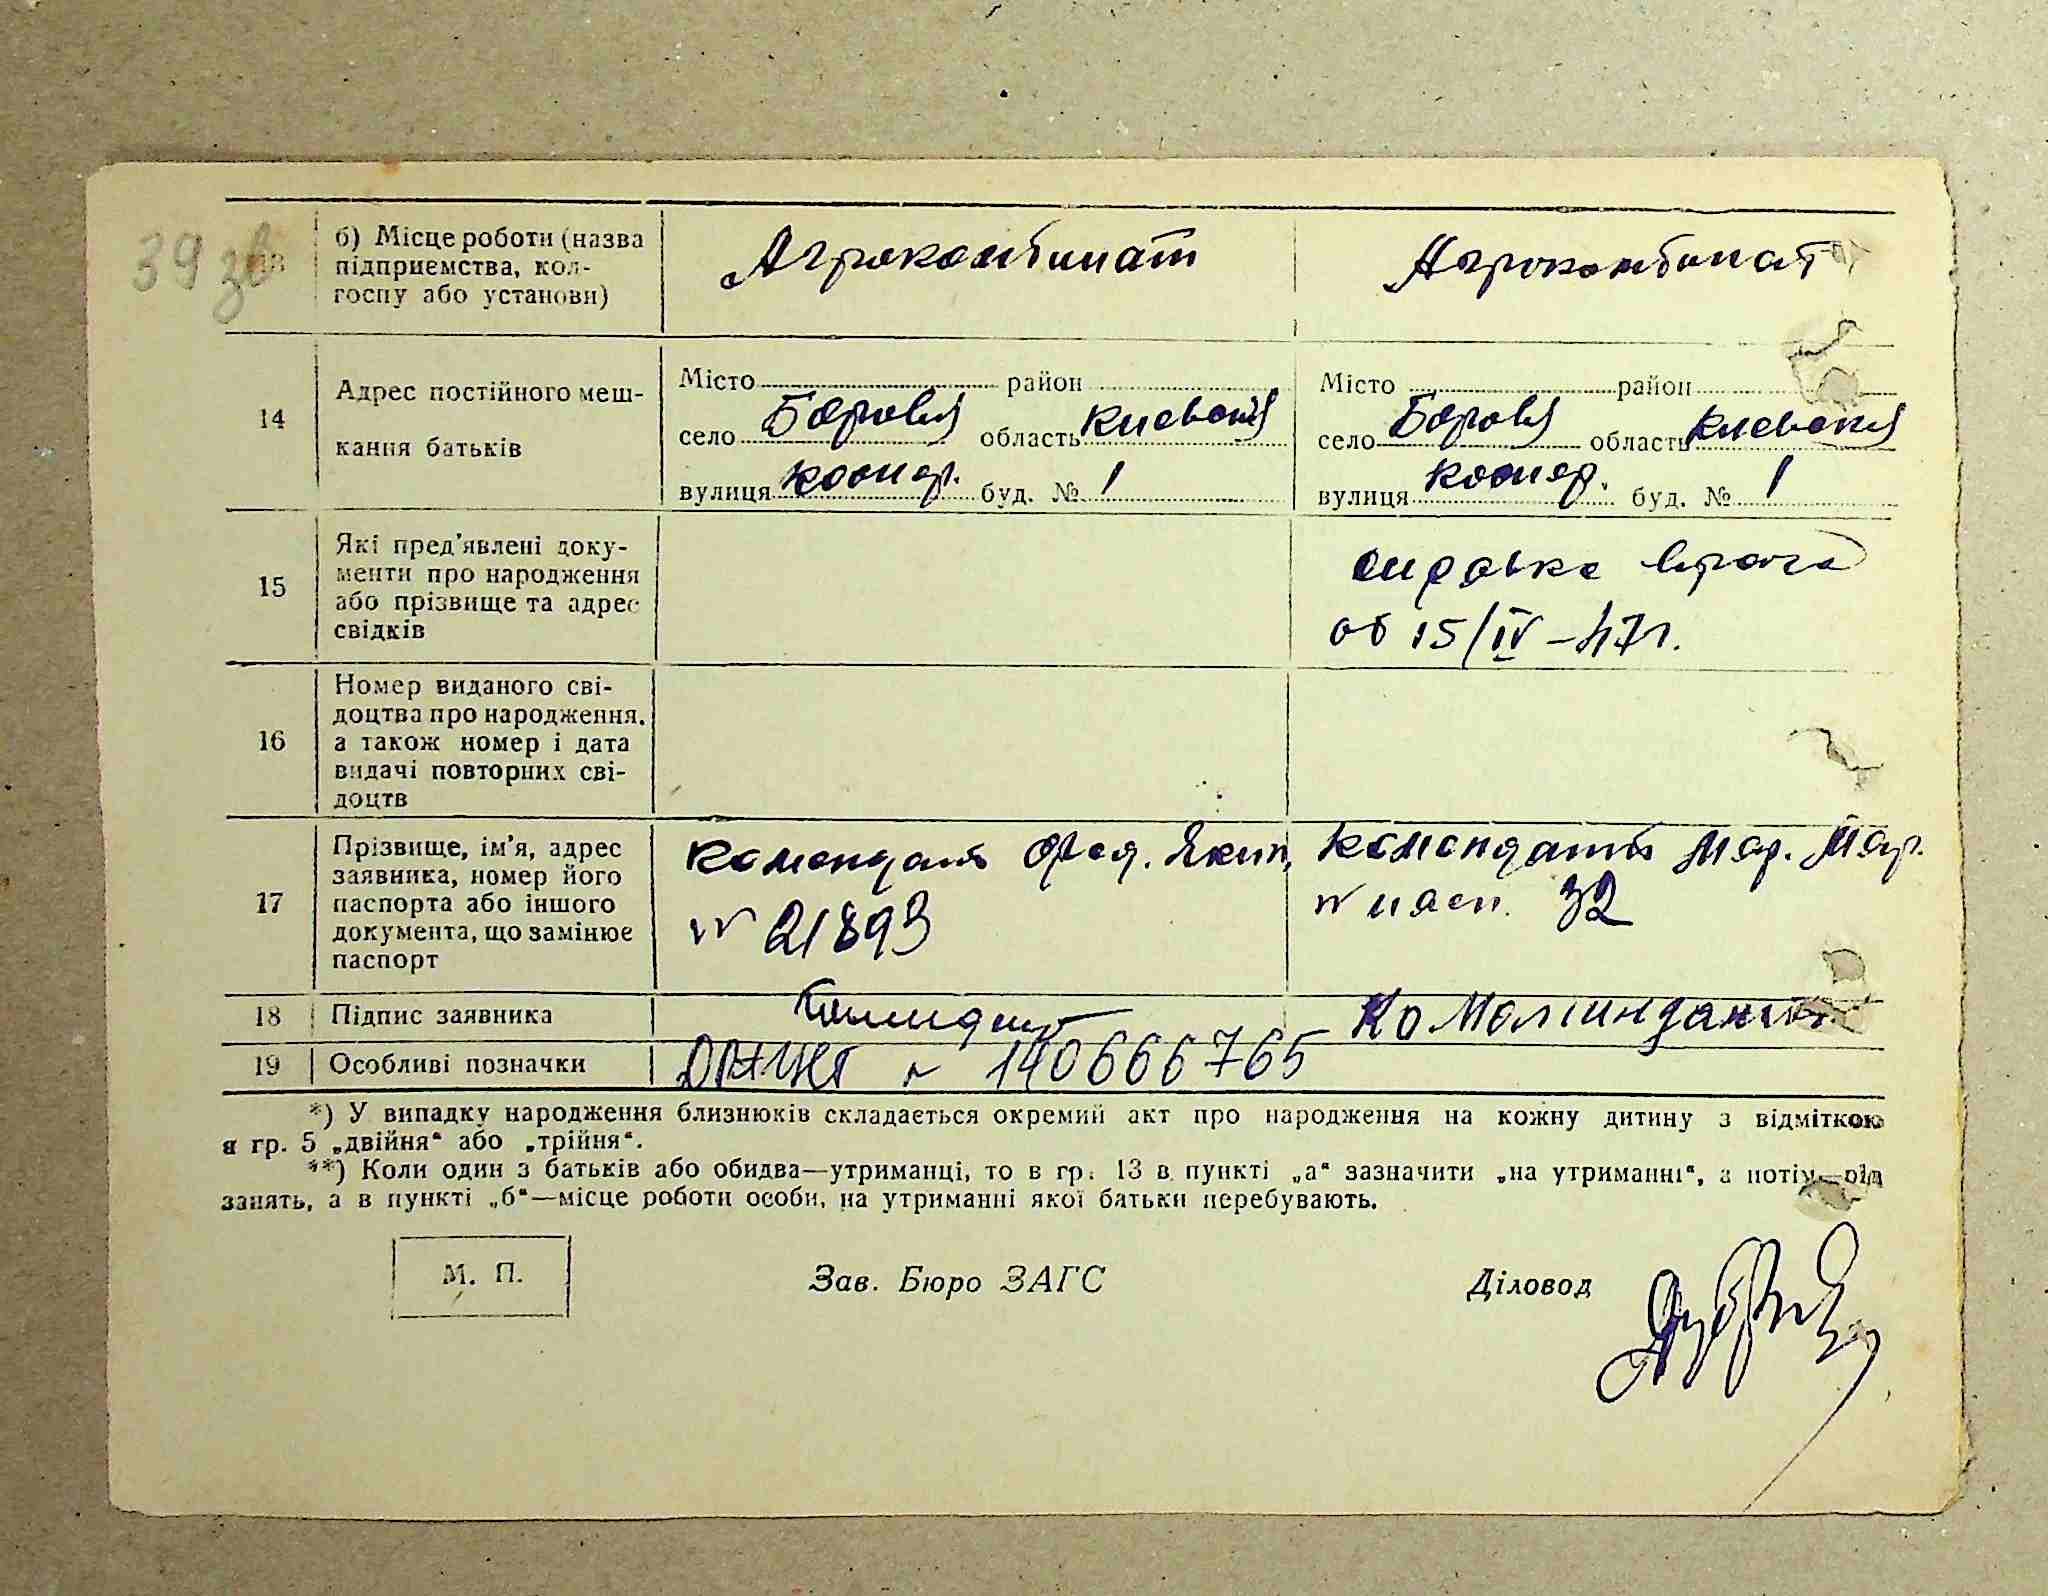 39 зв
13
б) Місце роботи (назва
підприємства, кол-
госпу або установи)
Агрокомбинат
Агрокомбинат
14
Адрес постійного меш-
кання батьків
Місто район
село Боровая область Киевская
вулиця коопер. буд. № 1
Місто район
село Боровая область Киевская
вулиця коопер. буд. № 1
15
Які пред'явлені доку-
менти про народження
або прізвище та адрес
свідків
справка врача
об 15/IV-47г.
16
Номер виданого сві-
доцтва про народження,
а також номер і дата
видачі повторних сві-
доцтв
17
Прізвище, ім'я, адрес
заявника, номер його
паспорта або іншого
документа, що замінює
паспорт
Комендант Фед. Яким.
№ 21893
Комендант Мар. Мар.
№ пасп. 32
18
Підпис заявника
19
Особливі позначки
№ 140666765
*) У випадку народження близнюків складається окремий акт про народження на кожну дитину з відміткою
в гр. 5 „двійня“ або „трійня“.
**) Коли один з батьків або обидва—утриманці, то в гр. 13 в пункті „а“ зазначити „на утриманні“, а потім—рід
занять, а в пункті „б“—місце роботи особи, на утриманні якої батьки перебувають.
М. П.
Зав. Бюро ЗАГС
Діловод